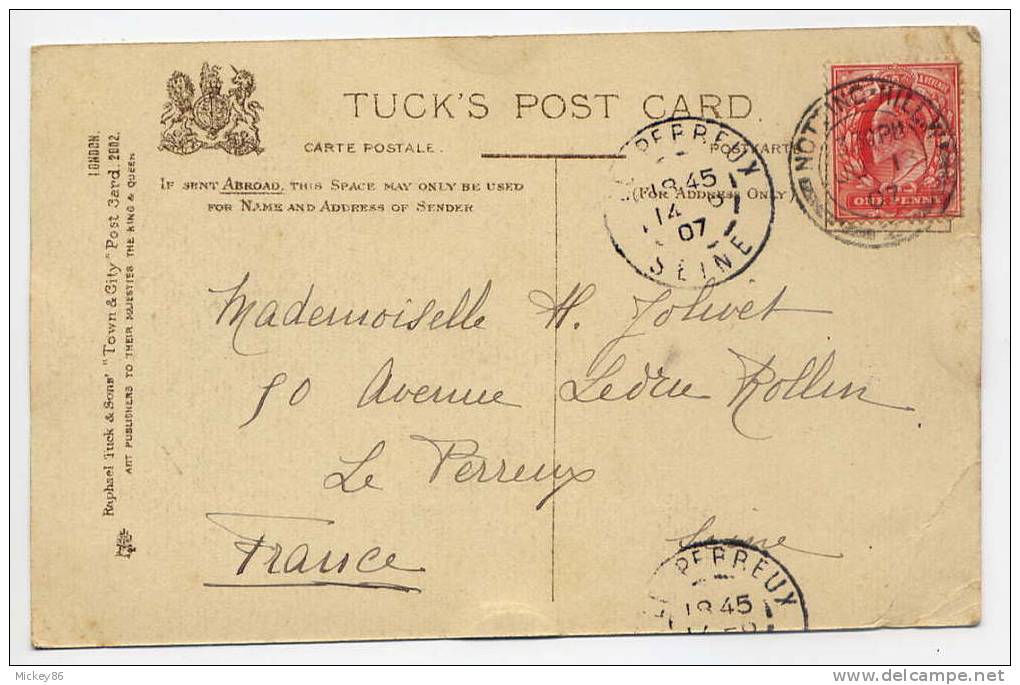 TUCK'S POST CARD.
CARTE POSTALE.
POSTKARTE
IF SENT ABROAD, THIS SPACE MAY ONLY BE USED
FOR NAME AND ADDRESS OF SENDER
(FOR ADDRESS ONLY)
LONDON.
Raphael Tuck & Sons' "Town & City" Post Card. 2002.
ART PUBLISHERS TO THEIR MAJESTIES THE KING & QUEEN
PERREUX
18 45
14
07
SEINE
NOTTING-HILL
07
ONE PENNY
Mademoiselle H. Jolivet
50 Avenue Ledru Rollin
Le Perreux
Seine
France
PERREUX
18 45
Mickey86
delcampe.net